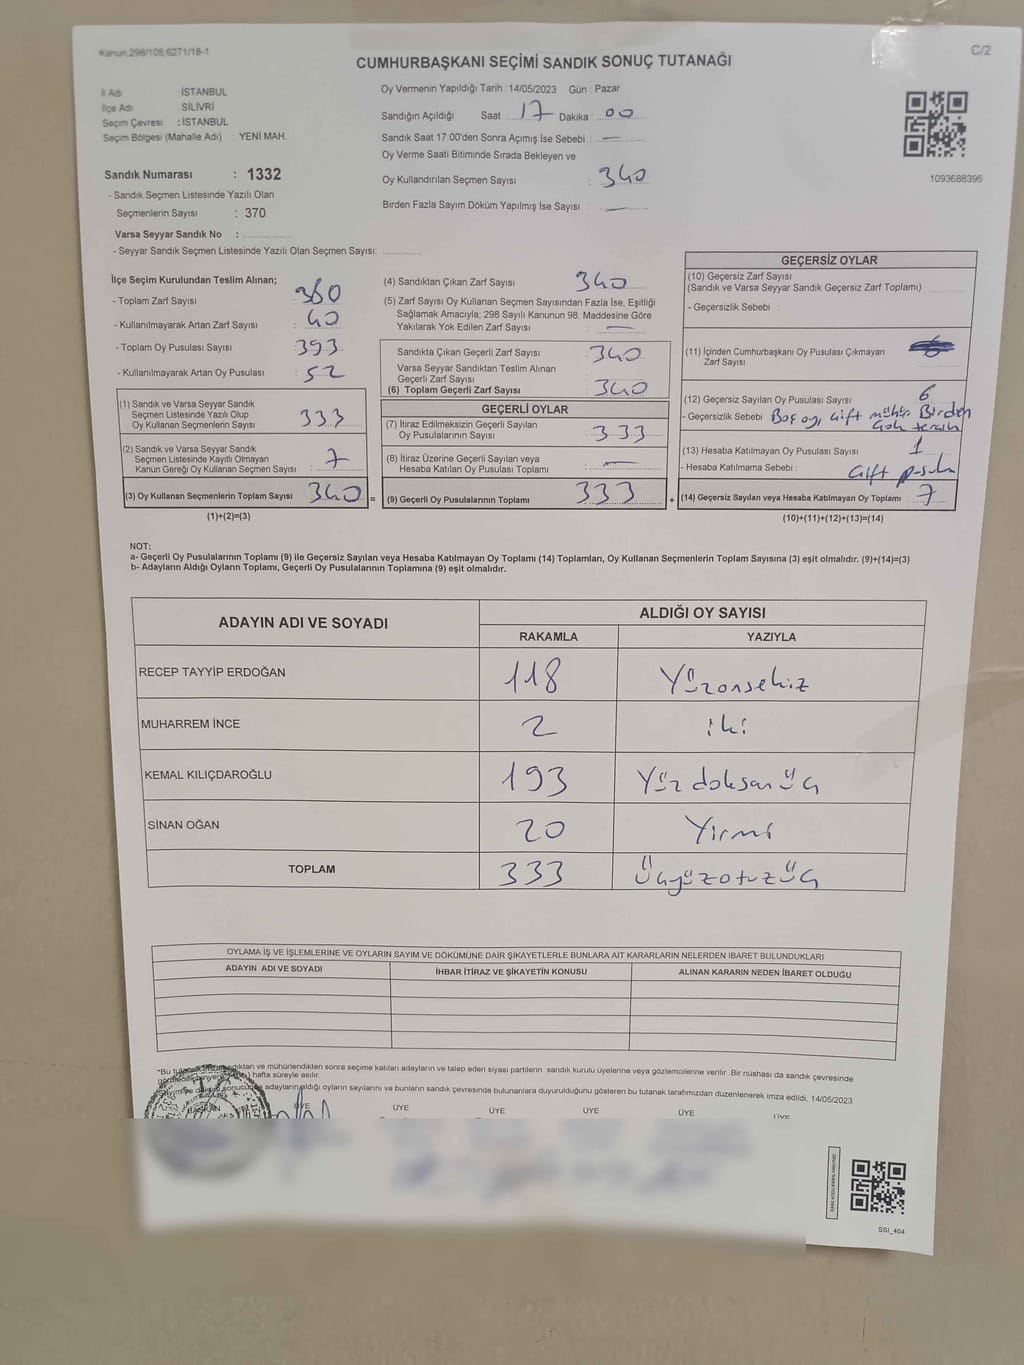 Kanun:298/105,6271/18-1
C/2
CUMHURBAŞKANI SEÇİMİ SANDIK SONUÇ TUTANAĞI
İl Adı : İSTANBUL
İlçe Adı : SİLİVRİ
Seçim Çevresi : İSTANBUL
Seçim Bölgesi (Mahalle Adı) : YENİ MAH.
Sandık Numarası : 1332
- Sandık Seçmen Listesinde Yazılı Olan
Seçmenlerin Sayısı : 370
Varsa Seyyar Sandık No :
- Seyyar Sandık Seçmen Listesinde Yazılı Olan Seçmen Sayısı:
Oy Vermenin Yapıldığı Tarih : 14/05/2023 Gün : Pazar
Sandığın Açıldığı Saat 17 Dakika : 00
Sandık Saat 17:00'den Sonra Açımış İse Sebebi : —
Oy Verme Saati Bitiminde Sırada Bekleyen ve
Oy Kullandırılan Seçmen Sayısı : 340
Birden Fazla Sayım Döküm Yapılmış İse Sayısı : —
1093688396
İlçe Seçim Kurulundan Teslim Alınan;
- Toplam Zarf Sayısı : 380
- Kullanılmayarak Artan Zarf Sayısı : 40
- Toplam Oy Pusulası Sayısı : 393
- Kullanılmayarak Artan Oy Pusulası : 52
(1) Sandık ve Varsa Seyyar Sandık
Seçmen Listesinde Yazılı Olup
Oy Kullanan Seçmenlerin Sayısı : 333
(2) Sandık ve Varsa Seyyar Sandık
Seçmen Listesinde Kayıtlı Olmayan
Kanun Gereği Oy Kullanan Seçmen Sayısı : 7
(3) Oy Kullanan Seçmenlerin Toplam Sayısı 340 =
(1)+(2)=(3)
(4) Sandıktan Çıkan Zarf Sayısı : 340
(5) Zarf Sayısı Oy Kullanan Seçmen Sayısından Fazla İse, Eşitliği
Sağlamak Amacıyla; 298 Sayılı Kanunun 98. Maddesine Göre
Yakılarak Yok Edilen Zarf Sayısı : —
Sandıkta Çıkan Geçerli Zarf Sayısı : 340
Varsa Seyyar Sandıktan Teslim Alınan
Geçerli Zarf Sayısı :
(6) Toplam Geçerli Zarf Sayısı : 340
GEÇERLİ OYLAR
(7) İtiraz Edilmeksizin Geçerli Sayılan
Oy Pusulalarının Sayısı : 333
(8) İtiraz Üzerine Geçerli Sayılan veya
Hesaba Katılan Oy Pusulası Toplamı : —
(9) Geçerli Oy Pusulalarının Toplamı : 333 +
GEÇERSİZ OYLAR
(10) Geçersiz Zarf Sayısı
(Sandık ve Varsa Seyyar Sandık Geçersiz Zarf Toplamı)
- Geçersizlik Sebebi :
(11) İçinden Cumhurbaşkanı Oy Pusulası Çıkmayan
Zarf Sayısı
(12) Geçersiz Sayılan Oy Pusulası Sayısı : 6
- Geçersizlik Sebebi Boş oy, çift mühür Birden
çok tercih
(13) Hesaba Katılmayan Oy Pusulası Sayısı : 1
- Hesaba Katılmama Sebebi : çift pusula
(14) Geçersiz Sayılan veya Hesaba Katılmayan Oy Toplamı : 7
(10)+(11)+(12)+(13)=(14)
NOT:
a- Geçerli Oy Pusulalarının Toplamı (9) ile Geçersiz Sayılan veya Hesaba Katılmayan Oy Toplamı (14) Toplamları, Oy Kullanan Seçmenlerin Toplam Sayısına (3) eşit olmalıdır. (9)+(14)=(3)
b- Adayların Aldığı Oyların Toplamı, Geçerli Oy Pusulalarının Toplamına (9) eşit olmalıdır.
ADAYIN ADI VE SOYADI ALDIĞI OY SAYISI
RAKAMLA YAZIYLA
RECEP TAYYİP ERDOĞAN 118 Yüzonsekiz
MUHARREM İNCE 2 iki
KEMAL KILIÇDAROĞLU 193 Yüzdoksanüç
SİNAN OĞAN 20 Yirmi
TOPLAM 333 Üçyüzotuzüç
OYLAMA İŞ VE İŞLEMLERİNE VE OYLARIN SAYIM VE DÖKÜMÜNE DAİR ŞİKAYETLERLE BUNLARA AİT KARARLARIN NELERDEN İBARET BULUNDUKLARI
ADAYIN ADI VE SOYADI İHBAR İTİRAZ VE ŞİKAYETİN KONUSU ALINAN KARARIN NEDEN İBARET OLDUĞU
*Bu ve mühürlendikten sonra seçime katılan adayların ve talep eden siyasi partilerin sandık kurulu üyelerine veya gözlemcilerine verilir .Bir nüshası da sandık çevresinde
hafta süreyle asılır.
adayların aldığı oyların sayılarını ve bunların sandık çevresinde bulunanlara duyurulduğunu gösteren bu tutanak tarafımızdan düzenlenerek imza edildi. 14/05/2023
BAŞKAN ÜYE ÜYE ÜYE ÜYE ÜYE ÜYE
SSI_404